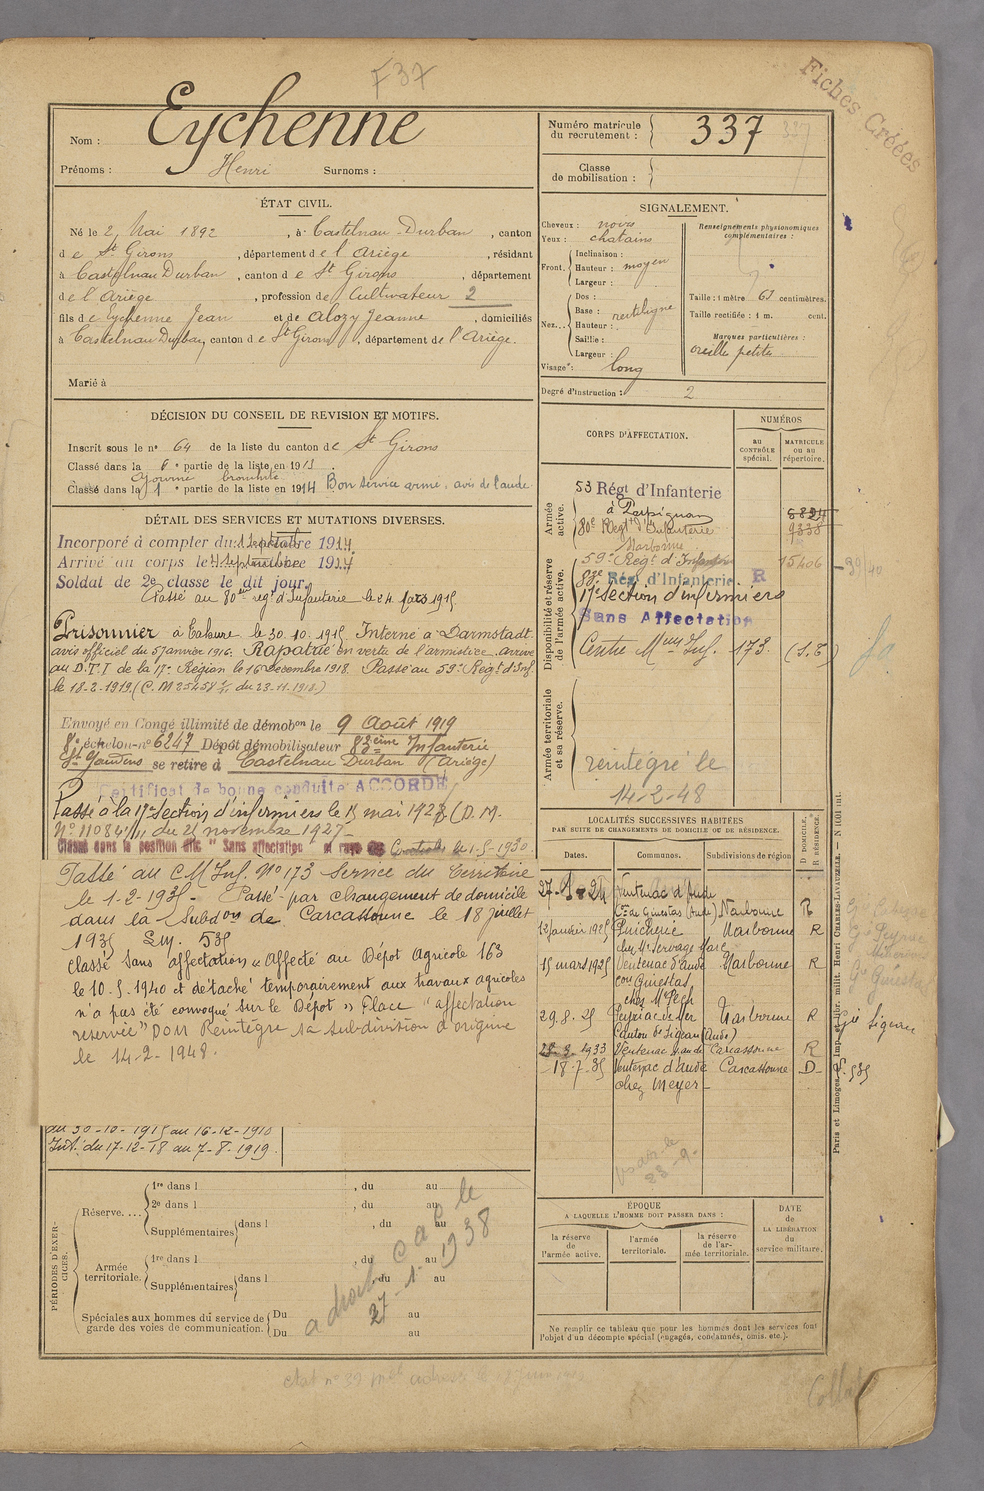 F37
Fiches Créées
Nom : Eychenne
Prénoms : Henri Surnoms :
Numéro matricule du recrutement : 337
Classe de mobilisation :
ÉTAT CIVIL.
Né le 2 Mai 1892, à Castelnau-Durban, canton
de St Girons, département de l'Ariège, résidant
à Castelnau Durban, canton de St Girons, département
de l'Ariège, profession de Cultivateur 2
fils de Eychenne Jean et de Alozy Jeanne, domiciliés
à Castelnau Durban, canton de St Girons, département de l'Ariège.
Marié à
SIGNALEMENT.
Cheveux : noirs
Yeux : chatains
Front. Inclinaison :
Hauteur : moyen
Largeur :
Nez... Dos :
Base : rectiligne
Hauteur :
Saillie :
Largeur :
Visage : long
Renseignements physionomiques complémentaires :
Taille : 1 mètre 63 centimètres.
Taille rectifiée : 1 m. cent.
Marques particulières :
oreille petites
Degré d'instruction : 2
DÉCISION DU CONSEIL DE REVISION ET MOTIFS.
Inscrit sous le no 64 de la liste du canton de St Girons
Classé dans la 6e partie de la liste en 1913.
Ajourné bronchite
Classé dans la 1e partie de la liste en 1914 Bon service armé, avis de l'aude
DÉTAIL DES SERVICES ET MUTATIONS DIVERSES.
Incorporé à compter du septembre 1914
Arrivé au corps le septembre 1914
Soldat de 2e classe le dit jour.
Passé au 80ème régt d'Infanterie le 24 Mars 1915.
Prisonnier à Tahure le 30.10.1915. Interné à Darmstadt
avis officiel du 5 Janvier 1916. Rapatrié en vertu de l'armistice. arrivé
au D.T.I de la 17e Région le 16 Décembre 1918. Passé au 59e Régt d'Inf.
le 18-2-1919.
Envoyé en Congé illimité de démobon le 9 Août 1919
8e échelon no 6247 Dépôt démobilisateur 83ème Infanterie
St Gaudens se retire à Castelnau Durban (Ariège)
Certificat de bonne conduite ACCORDÉ
Passé à la 17e Section d'infirmiers le 15 mai 1928 (D.M.
du 21 novembre 1927-
Classé dans la position dite "Sans affectation" et rayé des Contrôles le 1-5-1930
Passé au C M Inf. No 173 Service du Territoire
le 1-2-1935- Passé par changement de domicile
dans la Subdon de Carcassonne le 18 juillet
1935 535
Classé Sans affectation "Affecté au Dépôt Agricole 163
le 10.5.1940 et détaché temporairement aux travaux agricoles
n'a pas été convoqué sur le Dépôt" Placé "affectation
réservée" Réintégré sa subdivision d'origine
le 14-2-1948.
du 30-10-1915 au 16-12-1918
Int. du 17-12-18 au 7-8-1919.
CORPS D'AFFECTATION.
NUMÉROS
au CONTRÔLE spécial.
MATRICULE ou au répertoire.
Armée active.
53 Régt d'Infanterie
à Perpignan
80e Régt d'Infanterie 9338
Narbonne
Disponibilité et réserve de l'armée active.
59e Régt d'Infanterie 15406
83e Régt d'Infanterie R
17e section d'infirmiers
Sans Affectation
Centre Meur Inf. 173. (S.T)
Armée territoriale et sa réserve.
réintégré le
14-2-48
LOCALITÉS SUCCESSIVES HABITÉES
PAR SUITE DE CHANGEMENTS DE DOMICILE OU DE RÉSIDENCE.
Dates. Communes. Subdivisions de région D DOMICILE. R RÉSIDENCE.
Ventenac d'Aude
Con de Ginestas (Aude) Narbonne R
12 Janvier 1925 Puichéric Narbonne R
15 mars 1925 Ventenac d'Aude Narbonne R
con Ginestas
29.8.25 Peyriac de Mer Narbonne R
Canton de Sigean (Aude) Gie Sigean
1933 Ventenac d'Aude Carcassonne R
18-7-35 Ventenac d'Aude Carcassonne D
chez Meyer
Paris et Limoges. Imp. et libr. milit. Henri CHARLES-LAVAUZELLE.
PÉRIODES D'EXERCICES.
Réserve.... 1re dans l , du au
2e dans l , du au
Supplémentaires dans l , du au
Armée territoriale. 1re dans l , du au
Supplémentaires dans l , du au
Spéciales aux hommes du service de garde des voies de communication. Du au
Du au
27-1-1938
ÉPOQUE
A LAQUELLE L'HOMME DOIT PASSER DANS :
la réserve de l'armée active.
l'armée territoriale.
la réserve de l'armée territoriale.
DATE de LA LIBÉRATION du service militaire.
Ne remplir ce tableau que pour les hommes dont les services font
l'objet d'un décompte spécial (engagés, condamnés, omis, etc.).